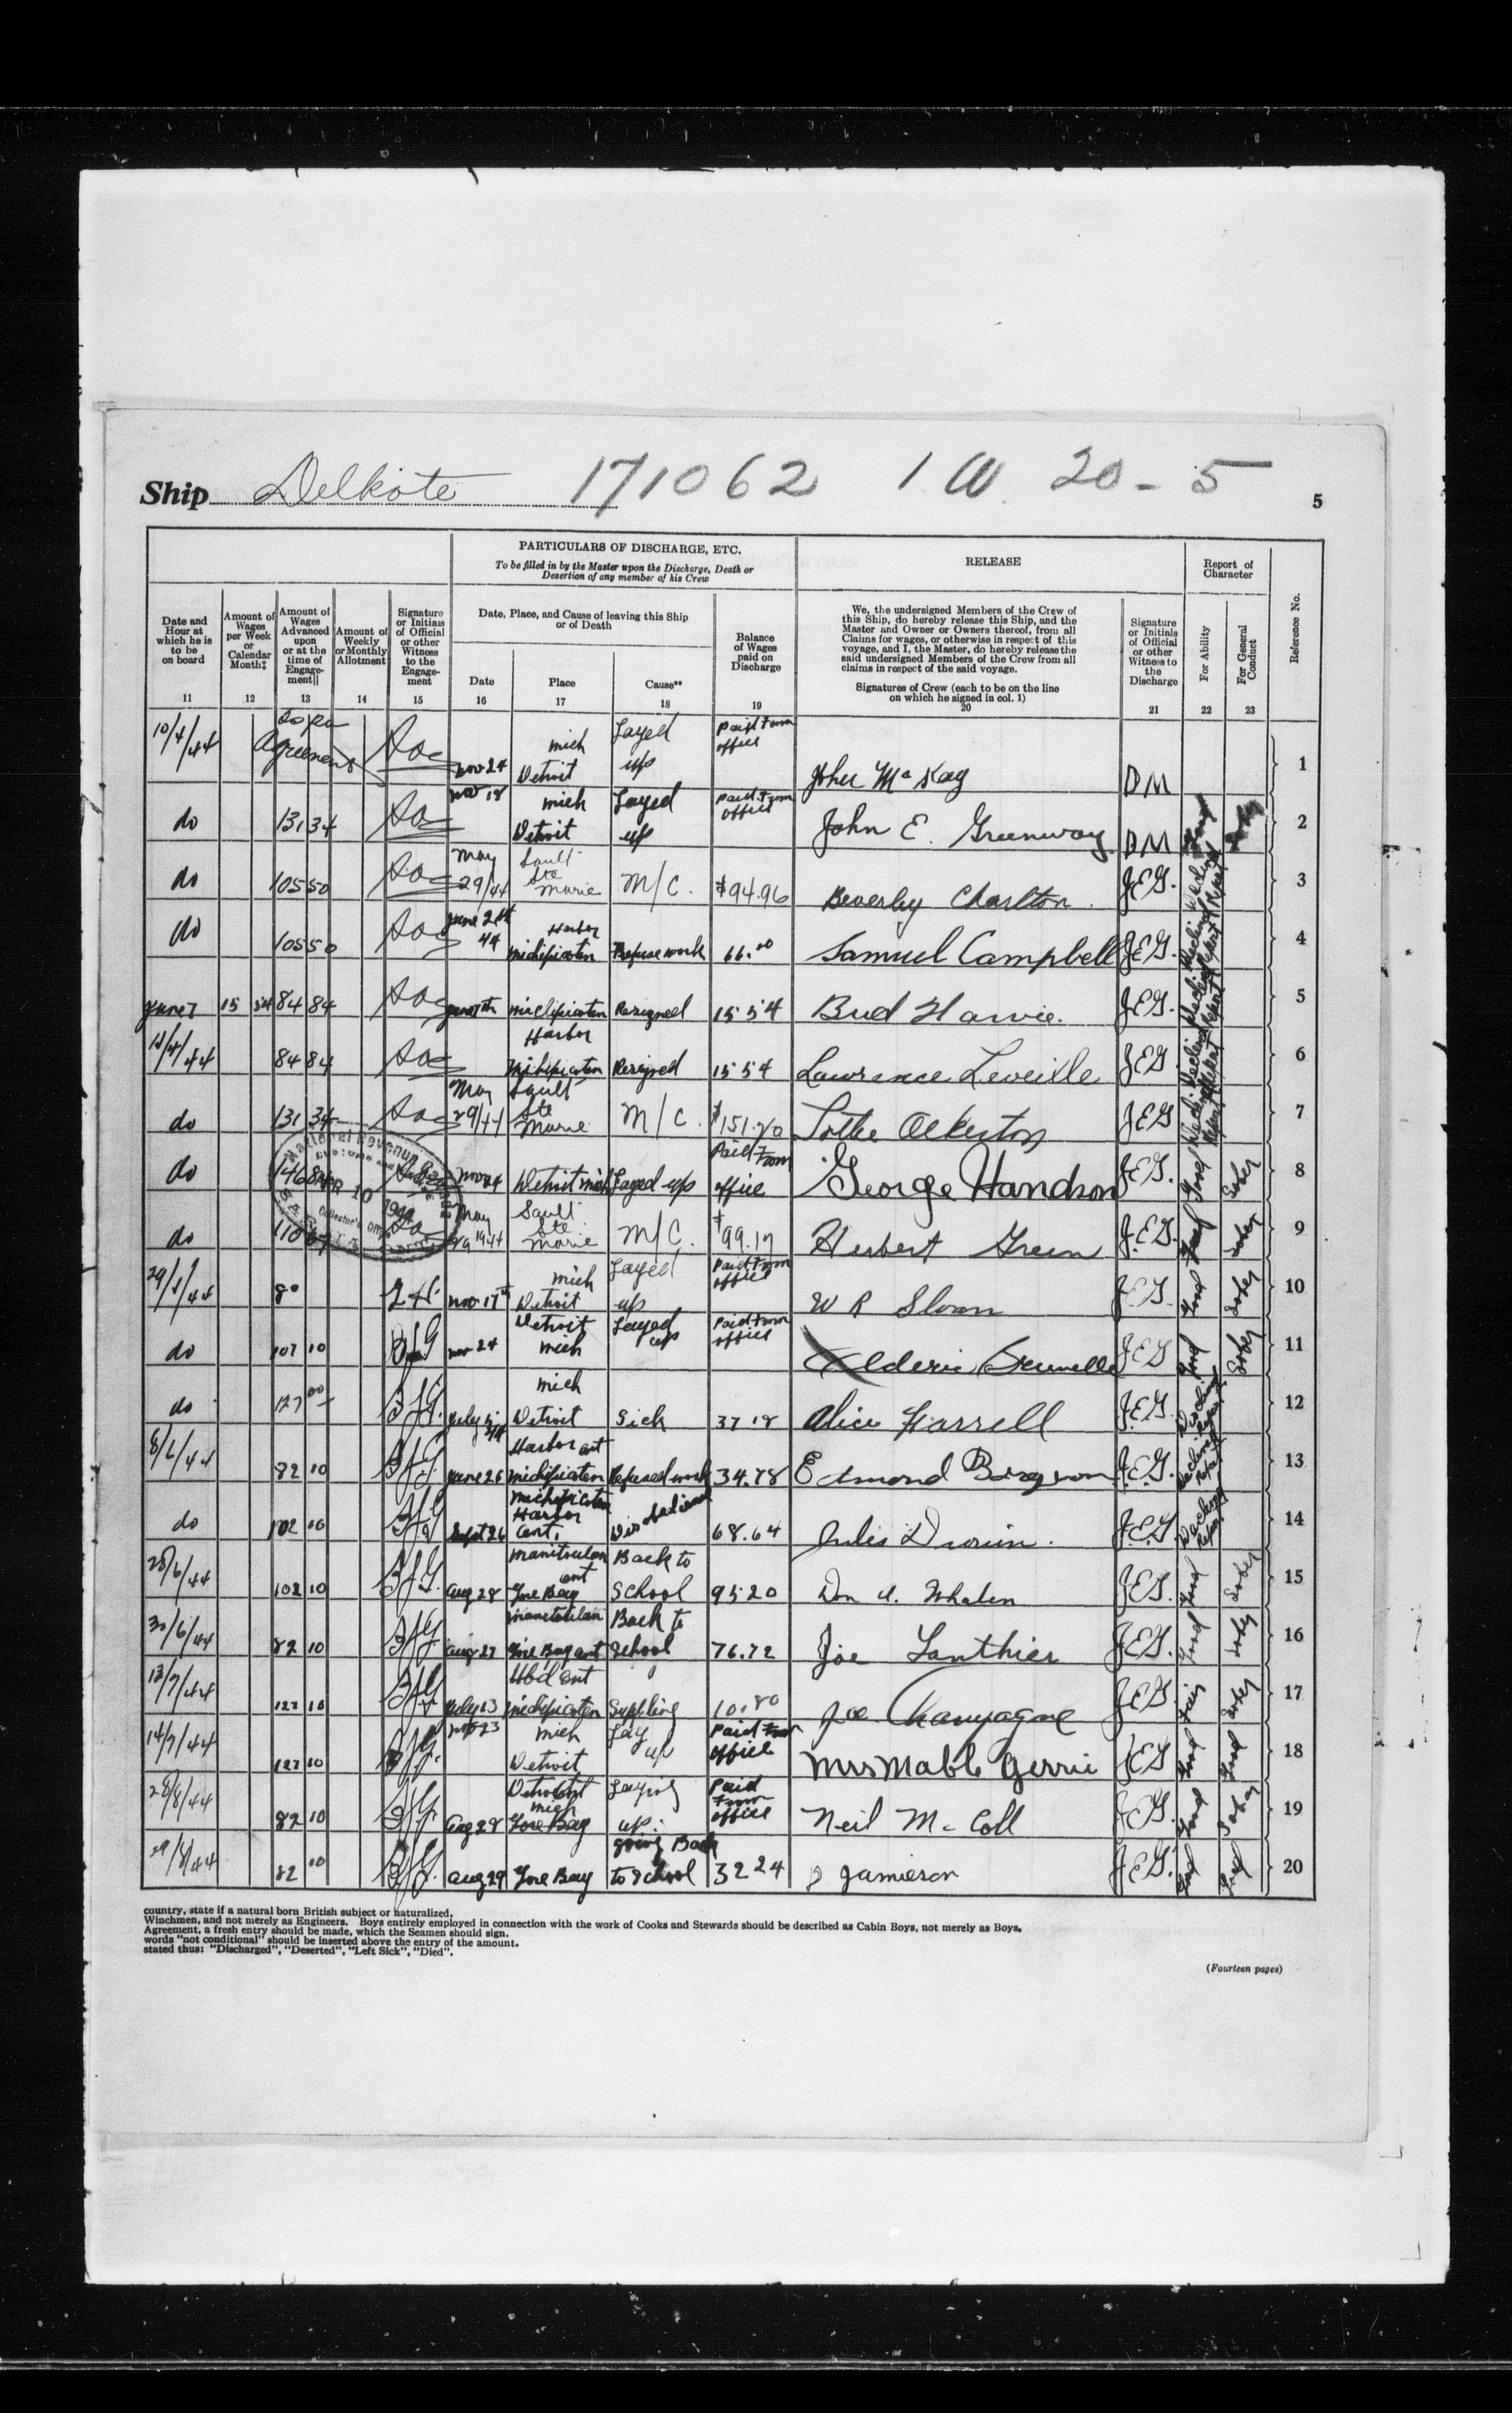 Ship Delkote 171062 1 W. 20 - 5
5
PARTICULARS OF DISCHARGE, ETC.
To be filled in by the Master upon the Discharge, Death or
Desertion of any member of his Crew
RELEASE
Report of
Character
Date and
Hour at
which he is
to be
on board
11
Amount of
Wages
per Week
or
Calendar
Month‡
12
Amount of
Wages
Advanced
upon
or at the
time of
Engage-
ment||
13
Amount of
Weekly
or Monthly
Allotment
14
Signature
or Initials
of Official
or other
Witness
to the
Engage-
ment
15
Date, Place, and Cause of leaving this Ship
or of Death
Date
16
Place
17
Cause**
18
Balance
of Wages
paid on
Discharge
19
We, the undersigned Members of the Crew of
this Ship, do hereby release this Ship, and the
Master and Owner or Owners thereof, from all
Claims for wages, or otherwise in respect of this
voyage, and I, the Master, do hereby release the
said undersigned Members of the Crew from all
claims in respect of the said voyage.
Signatures of Crew (each to be on the line
on which he signed in col. 1)
20
Signature
or Initials
of Official
or other
Witness to
the
Discharge
21
For Ability
22
For General
Conduct
23
Reference No.
10/4/44 Agreement Nov 24 Mich Detroit Layed up Paid from office John McKay DM 1
do 131 34 Nov 18 Mich Detroit Layed up Paid from office John E. Greenway DM 2
do 105 50 May 29/44 Sault Ste Marie M/C. $94.96 Beverley Charlton. J.E.G. 3
do 105 50 June 44 Harbor Michipicoten Refuse work 66.00 Samuel Campbell J.E.G. 4
June 7 15 54 84 84 Michipicoten Resigned 15 54 Bud Harvie. J.E.G. 5
84 84 Harbor Michipicoten Resigned 15 54 Lawrence Leveille J.E.G 6
do 131 34 May 29/44 Sault Ste Marie M/C. J.E.G 7
do Nov 24 Detroit Mich Layed up Paid from office George Handson J.E.G. Good Sober 8
do May 29 1944 Sault Ste Marie M/C. 99.17 Herbert Green J.E.G. Good Sober 9
80 Nov 17th Mich Detroit Layed up Paid from office W R Sloan J.E.G. Good Sober 10
do 107 10 Nov 24 Detroit Mich Layed up Paid from office J.E.G Good Sober 11
do 127 00 Mich Detroit Sick 37 18 Alice Farrell J.E.G. 12
8/6/44 82 10 B.J.G. June 26 Harbor ont Michipicoten Refused work 34.78 Edmond J.E.G. 13
do 102 10 Sept 26 Michipicoten Harbor Ont. 68.64 Jules Drouin. J.E.G. 14
28/6/44 102 10 B.J.G. Aug 28 Manitoulan ont Gore Bay Back to School 95 20 Don A. Whalen J.E.G. Good Sober 15
30/6/44 82 10 Aug 27 Manitoulan Gore Bay ont Back to School 76.72 Joe Lanthier J.E.G. Good Sober 16
13/7/44 127 10 July 23 Hbd ont Michipicoten 10.80 Joe Champagne J.E.G. Fair Sober 17
14/7/44 127 10 Nov 23 Mich Detroit Lay up Paid from office Mrs Mable Gerrie J.E.G Good Good 18
28/8/44 82 10 Aug 28 Mich Gore Bay Laying up. Paid from office Neil McColl J.E.G. Good Sober 19
29/8/44 82 10 Aug 29 Gore Bay going Back to School 32 24 Jamieson J.E.G. Good Good 20
country, state if a natural born British subject or naturalized.
Winchmen, and not merely as Engineers. Boys entirely employed in connection with the work of Cooks and Stewards should be described as Cabin Boys, not merely as Boys.
Agreement, a fresh entry should be made, which the Seamen should sign.
words "not conditional" should be inserted above the entry of the amount.
stated thus: "Discharged", "Deserted", "Left Sick", "Died".
(Fourteen pages)